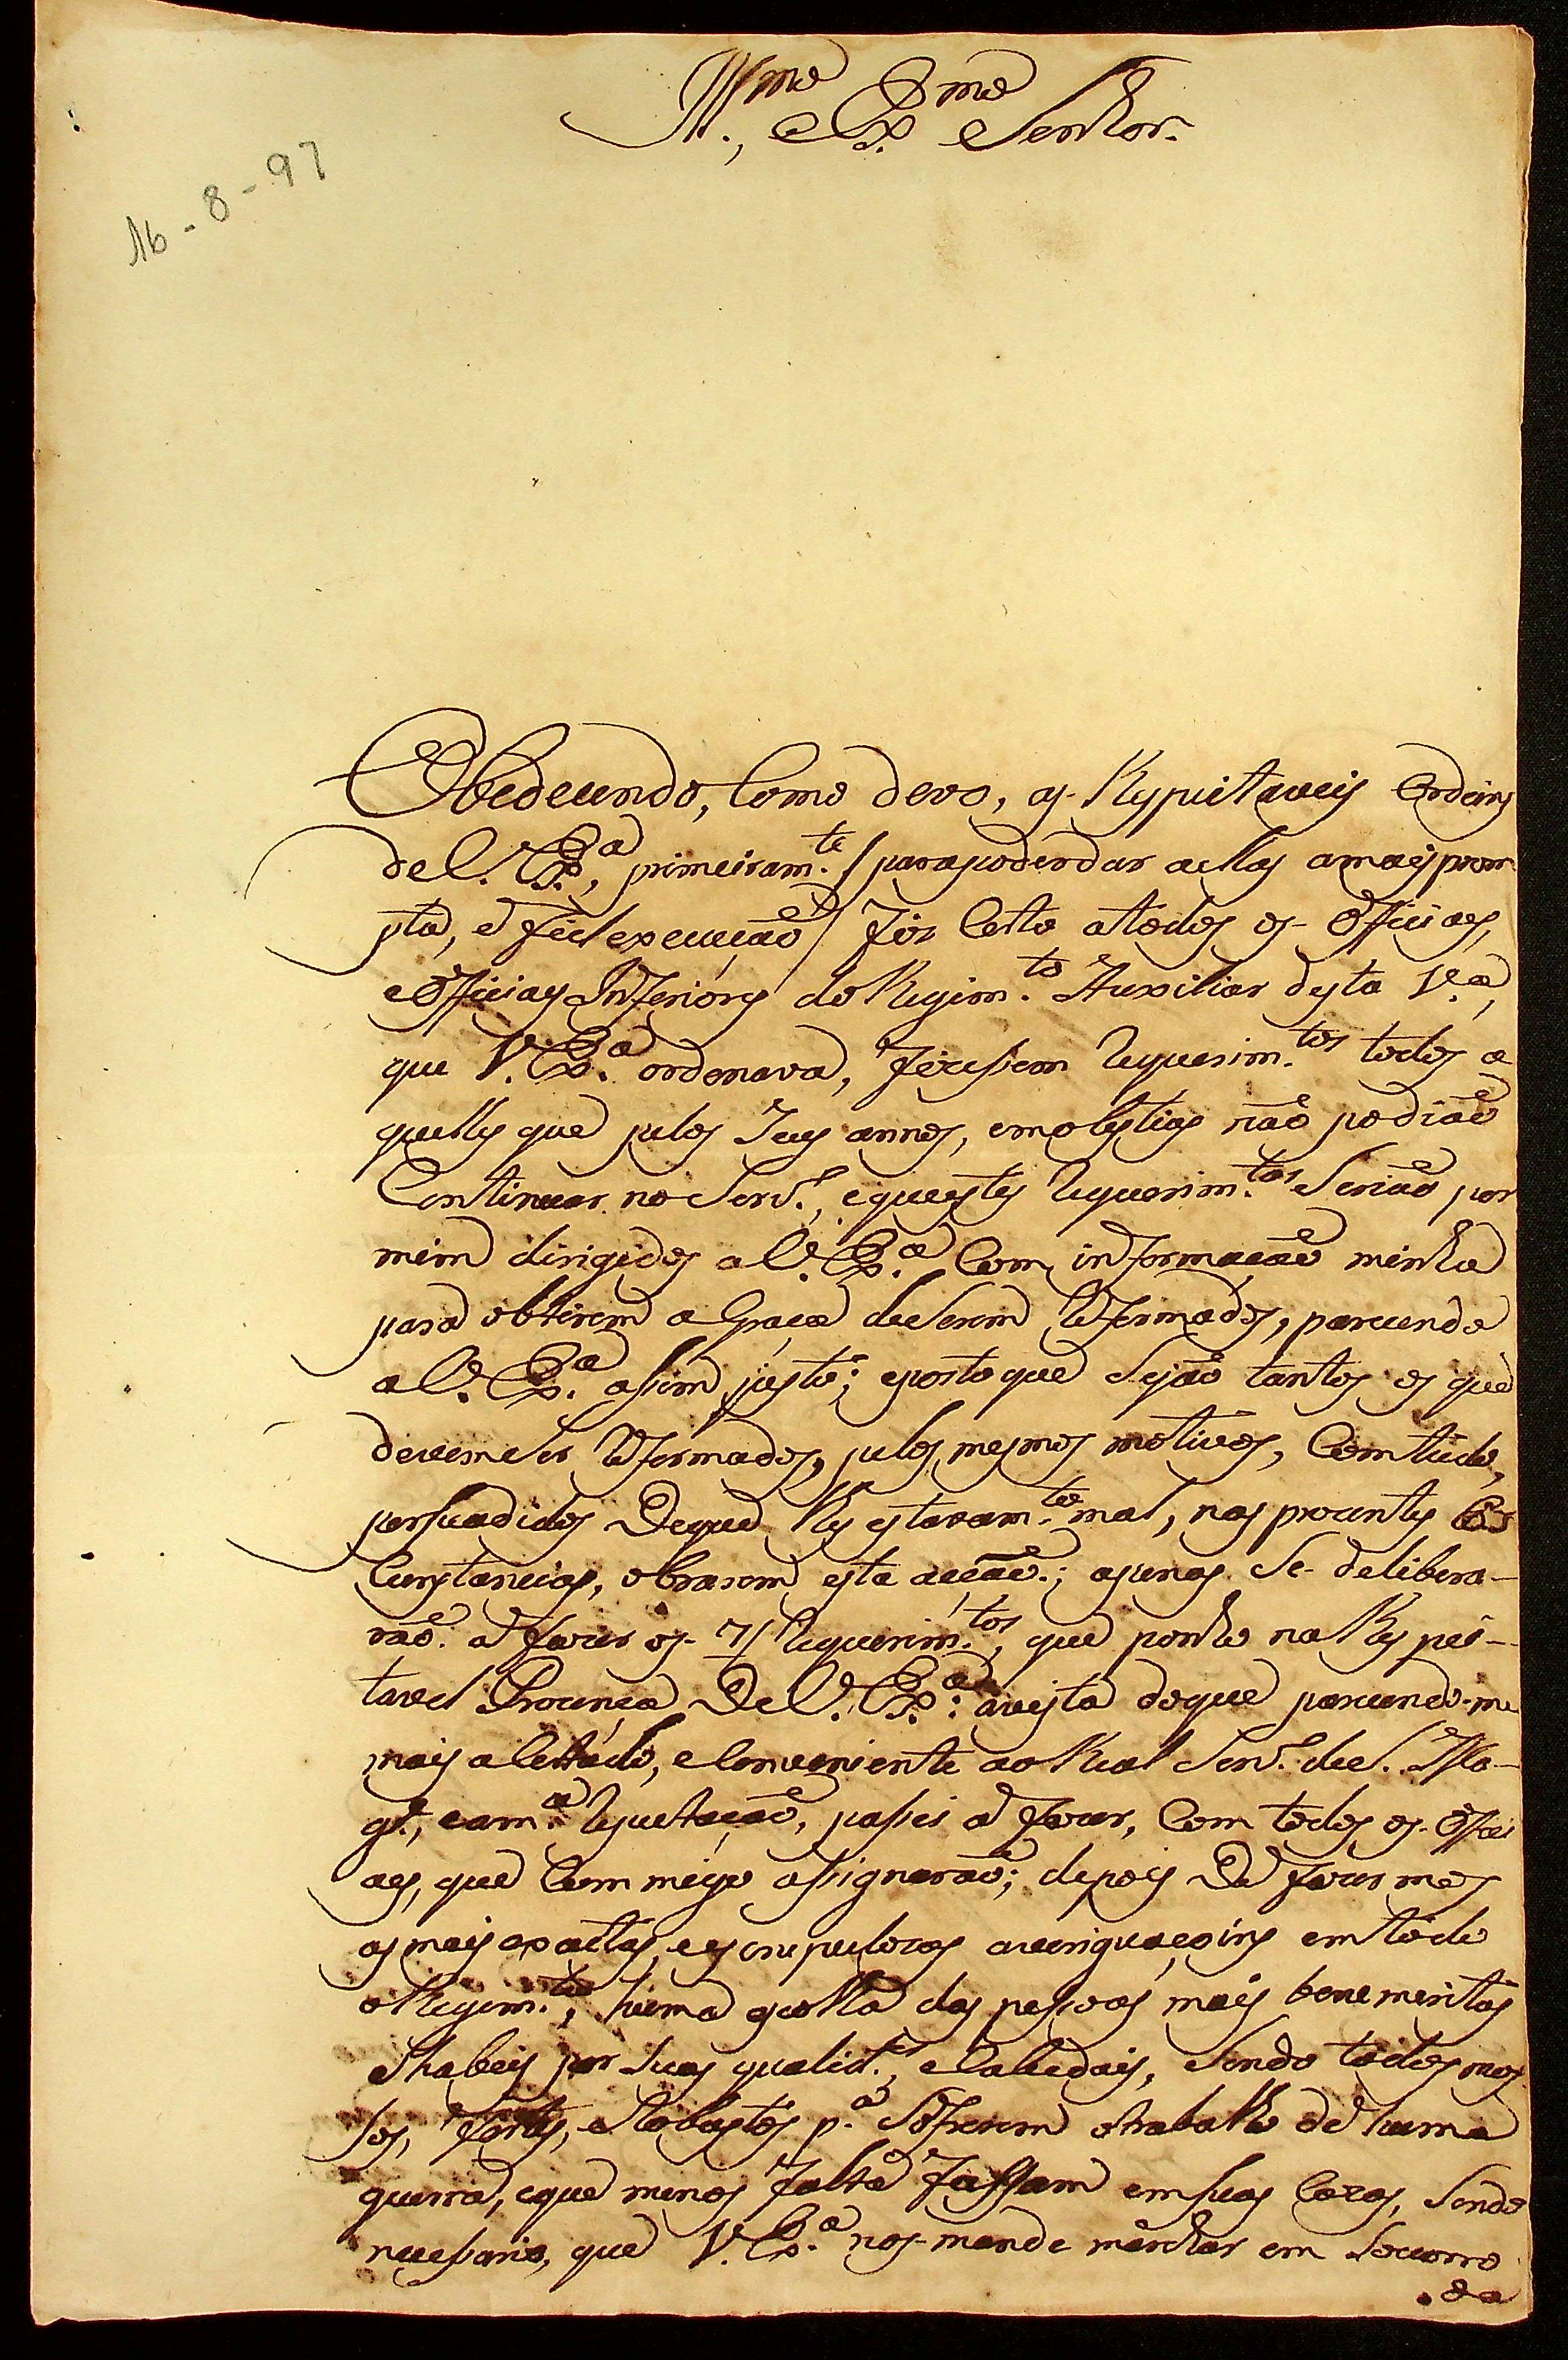 Ill.mo, e Ex.mo Senhor.
16-8-97
Obedecendo, Como devo, as Respeitaveis Ordeins
de V. Ex.a, primeiram.te / para poder dar a ellas a mais prom-
pta, e fiel execução / fiz Certo a todos os Officiaes,
e Officiaes Inferiores do Regim.to Auxiliar desta V.a,
que V. Ex.a ordenava, fizessem Requerim.tos todos a
quelles que pelos seus annos, e molestias não podião
Continuar no Serv.o, e que estes Requerim.tos Serião por
mim dirigidos a V. Ex.a Com informação minha
para obterem a Graça de Serem Reformados, parecendo
a V. Ex.a assim justo; e posto que Sejão tantos os que
devem Ser Reformados, pelos mesmos motivos, Comtudo,
persuadidos De que lhes estaram.te mal, nas prezentes Cir
Cunstancias, obrarem esta acção; apenas Se delibera-
rão a fazer os 7/ Requerim.tos, que ponho na Respei-
tavel Prezença De V. Ex.a: a vista do que parecendo-me
mais acertado, e Conveniente ao Real Serv.o de S. Ma-
g.e, e a m.a Reputação, passei a fazer, Com todos os Offici
aes, que Commigo assignarão; depois De fazermos
as mais exactas, e escrupulozas averiguaçoins em todo
o Regim.to, huma escolha das pessoas mais benemeritas
e habeis por Suas qualid.es, e Cabedais, Sendo todos mos-
sos, fortes, e Robustos p.a Sofrerem o trabalho de huma
guerra, e que menos falta fassam em suas Cazas, Sendo
necessario, que V. Ex.a nos mande marchar em Socorro
da